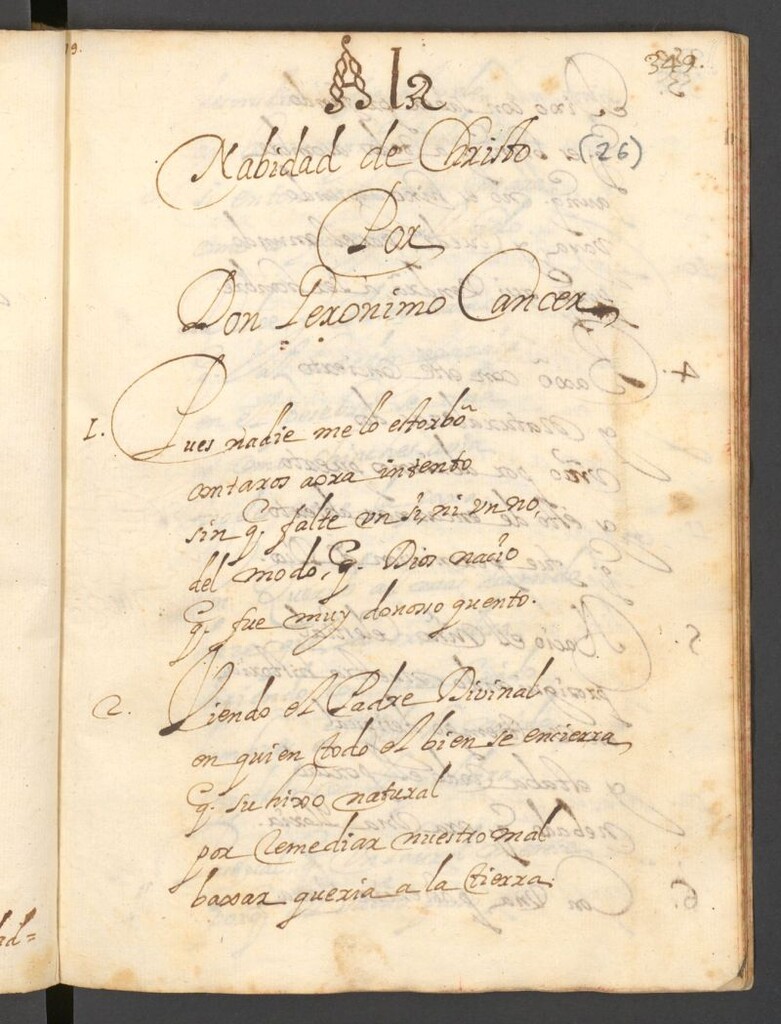 349.
A la
Nabidad de Christo (26)
Por
Don Geronimo Cancer
1. Pues nadie me lo estorbô
contaros aora intento
sin q. falte vn si, ni vn no,
del modo, q. Dios naçio
q. fue muy donoso quento.
2. Viendo el Padre Divinal
en quien todo el bien se encierra
q. su hixo natural
por remediar nuestro mal
baxar queria a la tierra.